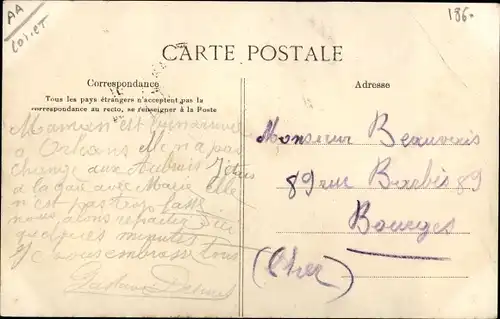 AA
186.
CARTE POSTALE
Correspondance
Tous les pays étrangers n'acceptent pas la
correspondance au recto, se renseigner à la Poste
Maman est bien arrivée
a Orleans Elle n'a pas
change aux Aubrais J'étais
a la gare avec Marie elle
n'est pas trop
nous alons repartir
quelques minutes
vous embrasse tous
Adresse
Monsieur Beauvais
89 rue Barbès 89
Bourges
(Cher)